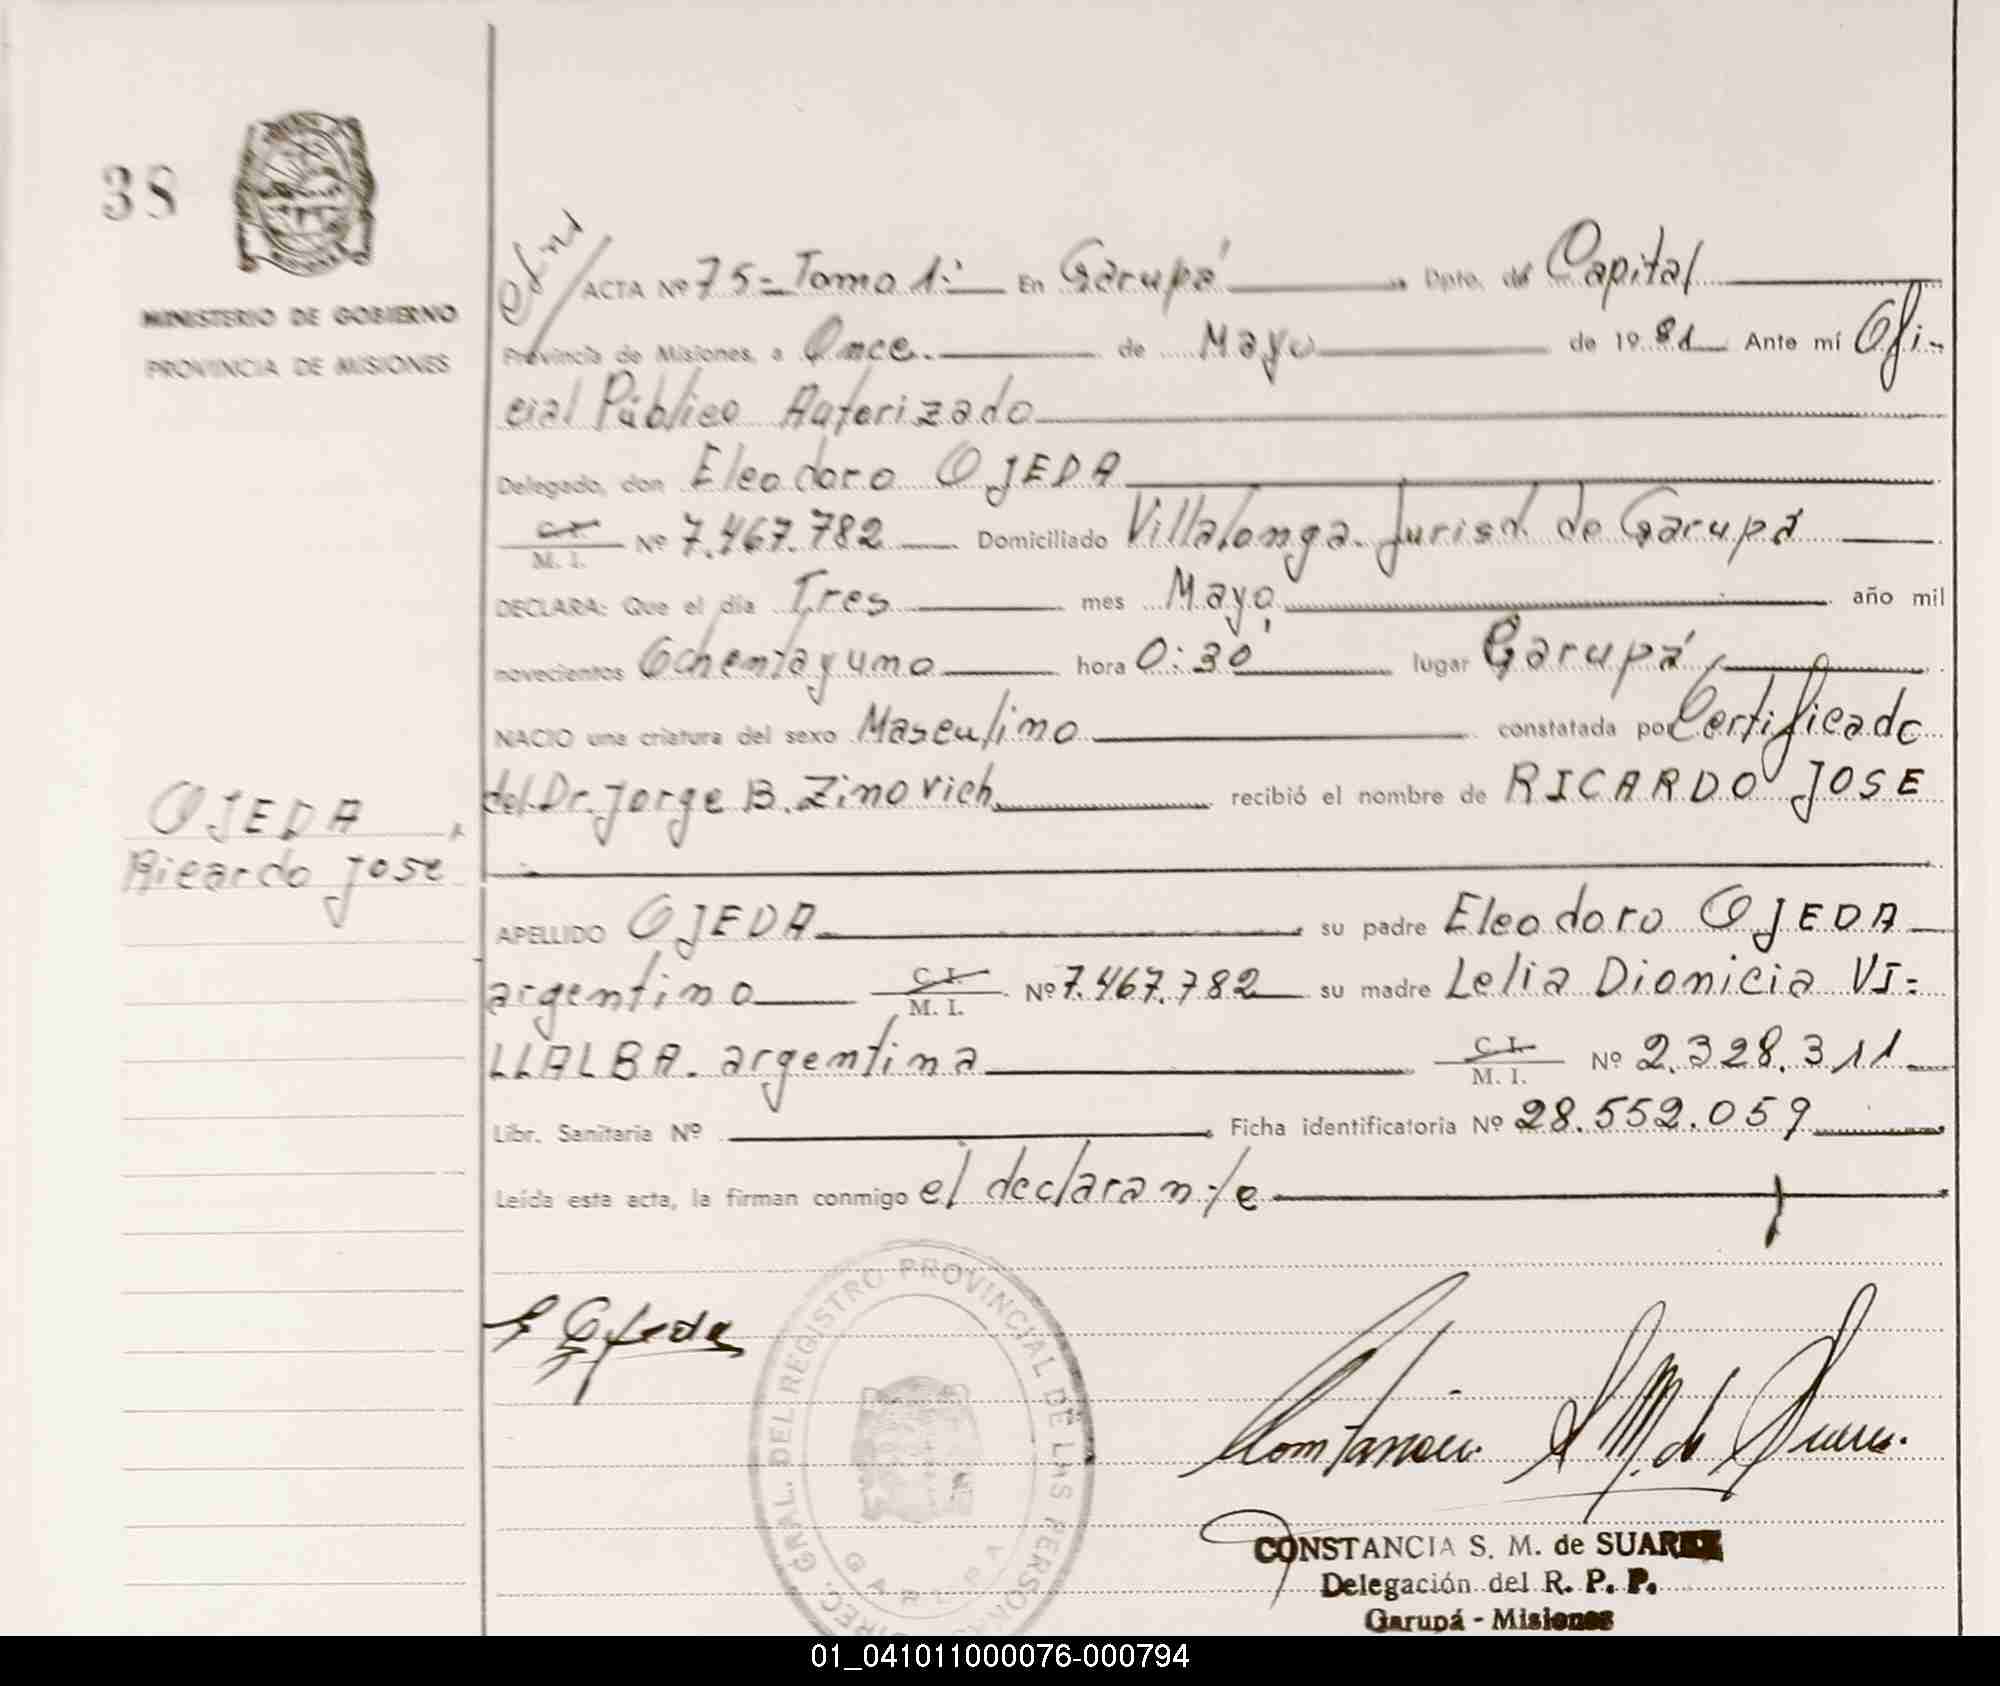 38
MINISTERIO DE GOBIERNO
PROVINCIA DE MISIONES
ACTA Nº 75 = Tomo 1º En Garupá Dpto. de Capital
Provincia de Misiones, a Once. de Mayo de 1981 Ante mí Ofi-
cial Público Autorizado
Delegado, don Eleodoro OJEDA
C. I.
M. I. Nº 7.467.782 Domiciliado Villalonga. Jurisd. de Garupá
DECLARA: Que el día Tres mes Mayo año mil
novecientos Ochentayuno hora 0:30' lugar Garupá
NACIO una criatura del sexo Masculino constatada por Certificado
del Dr. Jorge B. Zinovich recibió el nombre de RICARDO JOSE
OJEDA,
Ricardo Jose
APELLIDO OJEDA su padre Eleodoro OJEDA
argentino C. I. M. I. Nº 7.467.782 su madre Lelia Dionicia VI=
LLALBA. argentina C. I. M. I. Nº 2.328.311
Libr. Sanitaria Nº Ficha identificatoria Nº 28.552.059
Leída esta acta, la firman conmigo el declarante
E Ojeda
DIREC. GRAL. DEL REGISTRO PROVINCIAL DE LAS PERSONAS
GARUPA
Constancia S. M. de Suarez.
CONSTANCIA S. M. de SUAREZ
Delegación del R. P. P.
Garupá - Misiones
01_041011000076-000794